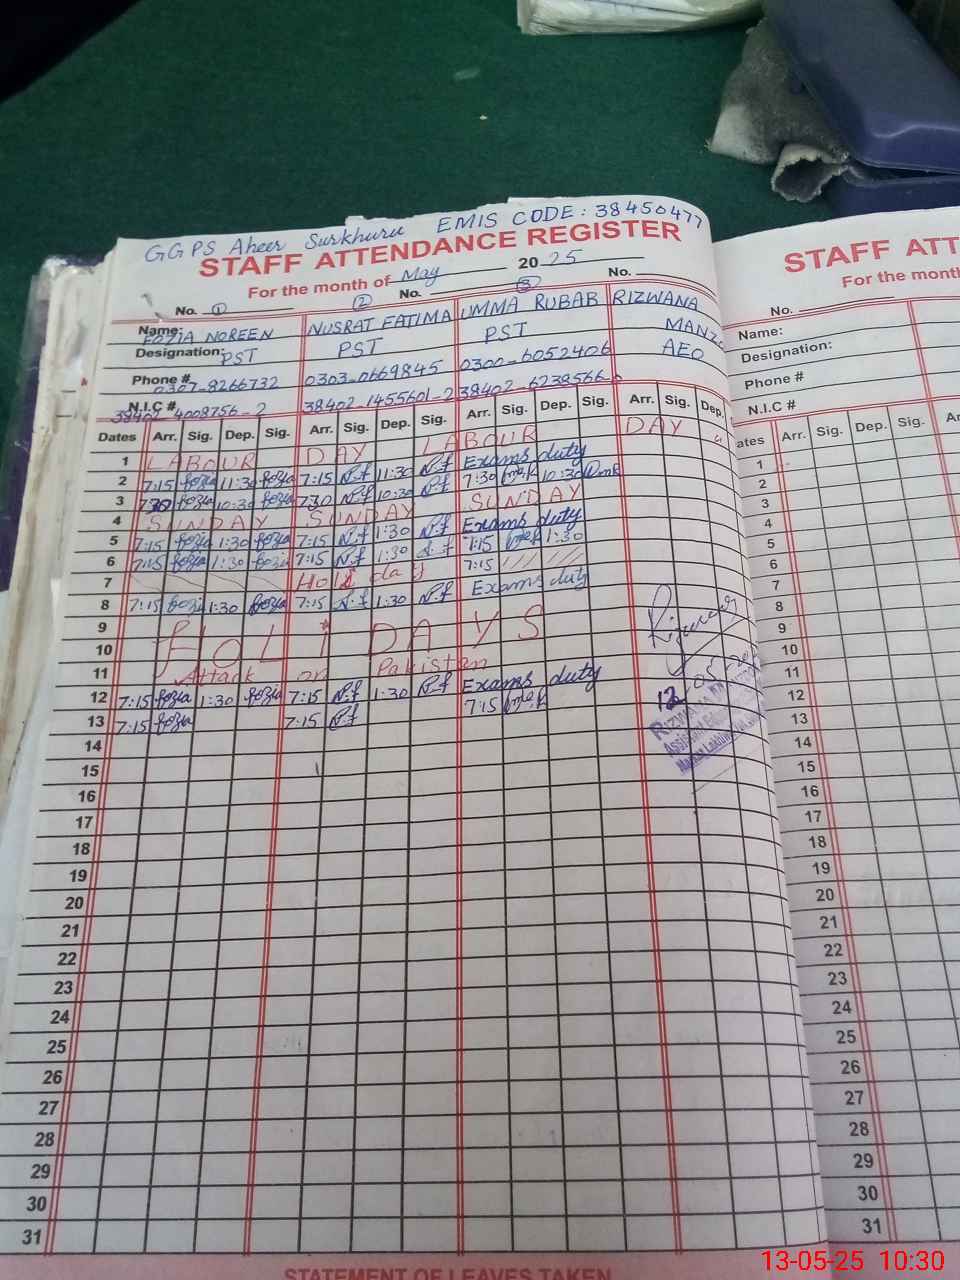 GGPS Aheer Surkhuru EMIS CODE: 38450477
STAFF ATTENDANCE REGISTER
For the month of May 2025
No. ① ② No. ③ No.
Name: FOZIA NOREEN NUSRAT FATIMA UMMA RUBAB RIZWANA
Designation: PST PST PST MANZ
AEO
Phone # 0307-8266732 0303-0669845 0300-6052406
N.I.C # 38402-4008756-2 38402-1455601-2 38402-6238566-0
Dates Arr. Sig. Dep. Sig. Arr. Sig. Dep. Sig. Arr. Sig. Dep. Sig. Arr. Sig. Dep.
1 LABOUR DAY LABOUR DAY
2 7:15 fozia 11:30 fozia 7:15 N.f 11:30 N.f Exams duty
3 730 fozia 10:30 fozia 730 N.f 10:30 N.f 7:30 10:30
4 SUNDAY SUNDAY SUNDAY
5 7:15 fozia 1:30 fozia 7:15 N.f 1:30 N.f Exams duty
6 7:15 fozia 1:30 fozia 7:15 N.f 1:30 N.f 7:15 1:30
7 Holiday 7:15
8 7:15 fozia 1:30 fozia 7:15 N.f 1:30 N.f Exams duty
9
10 HOLIDAYS
11 Attack on Pakistan
12 7:15 fozia 1:30 fozia 7:15 N.f 1:30 N.f Exams duty
13 7:15 fozia 7:15 N.f 7:15
12-05-20
14
15
16
17
18
19
20
21
22
23
24
25
26
27
28
29
30
31
STATEMENT OF LEAVES TAKEN
STAFF ATT
For the month
No.
Name:
Designation:
Phone #
N.I.C #
ates Arr. Sig. Dep. Sig. Ar
1
2
3
4
5
6
7
8
9
10
11
12
13
14
15
16
17
18
19
20
21
22
23
24
25
26
27
28
29
30
31
13-05-25 10:30